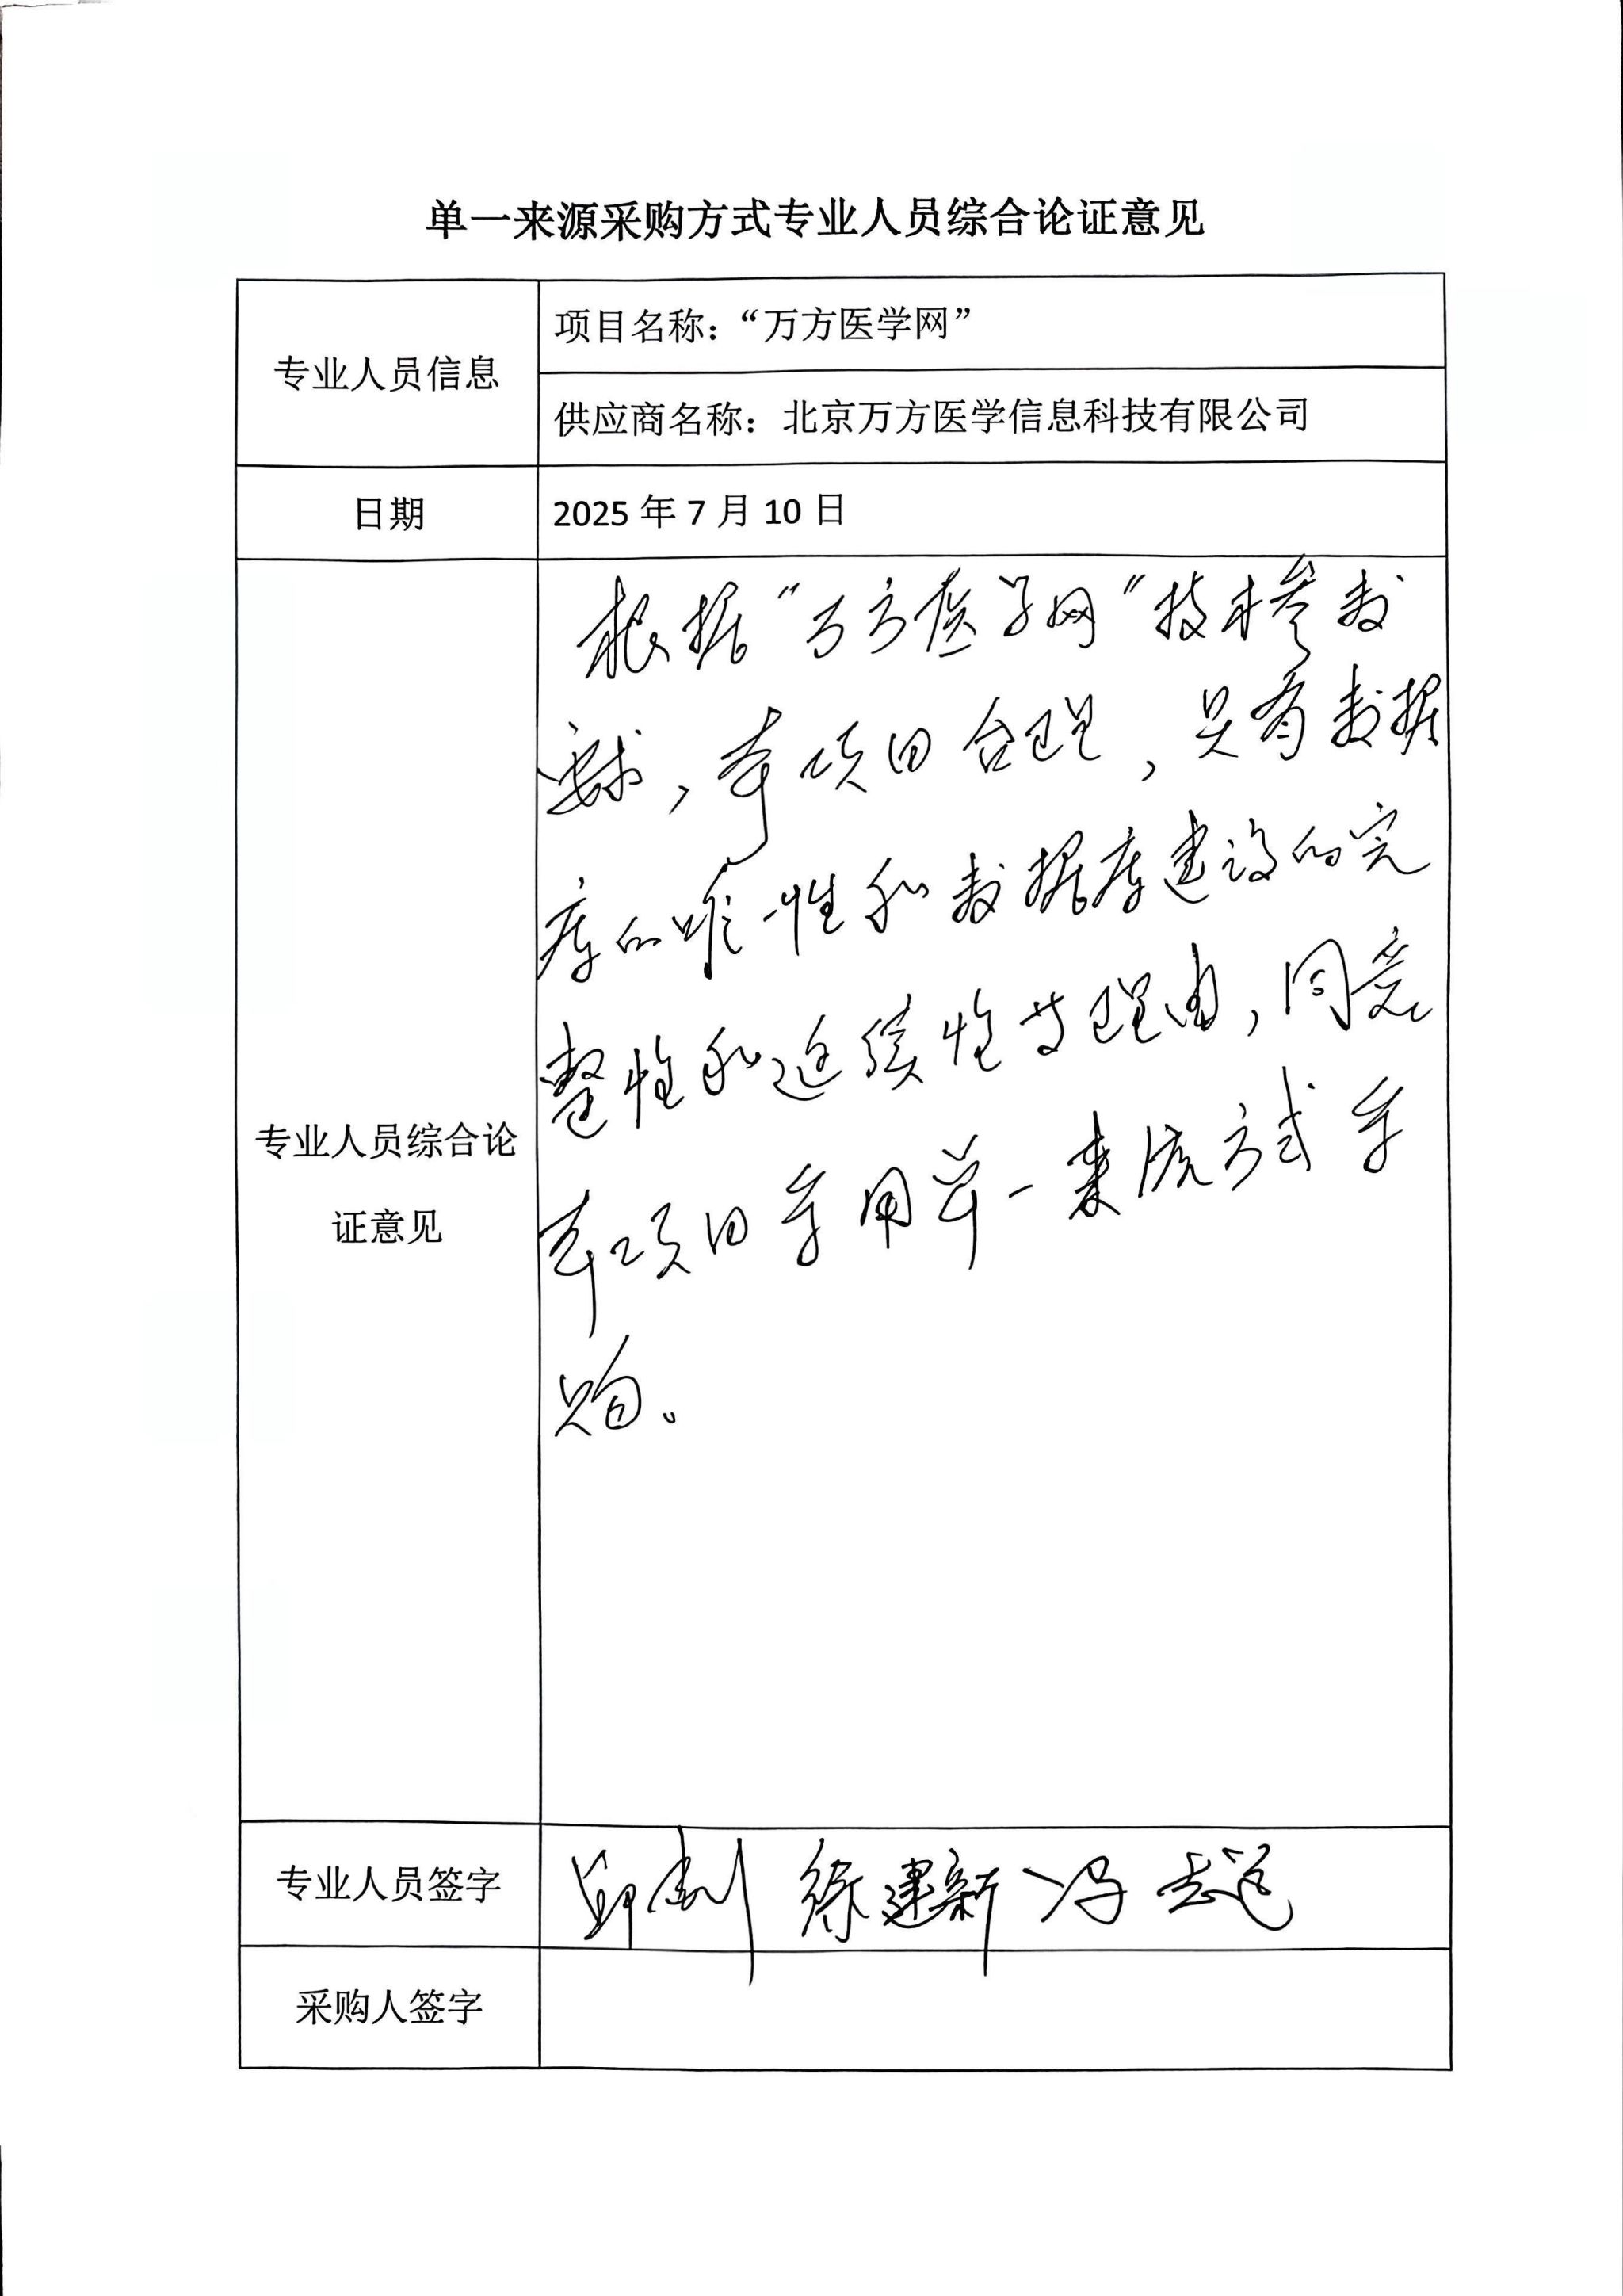 单一来源采购方式专业人员综合论证意见
专业人员信息
项目名称：“万方医学网”
供应商名称：北京万方医学信息科技有限公司
日期
2025年7月10日
专业人员综合论
证意见
根据“万方医学网”技术参数
要求，本项目合理，具有数据
库的唯一性和数据库建设的完
整性和连续性等理由，同意
本项目采用单一来源方式采
购。
专业人员签字
徐建新 冯
采购人签字